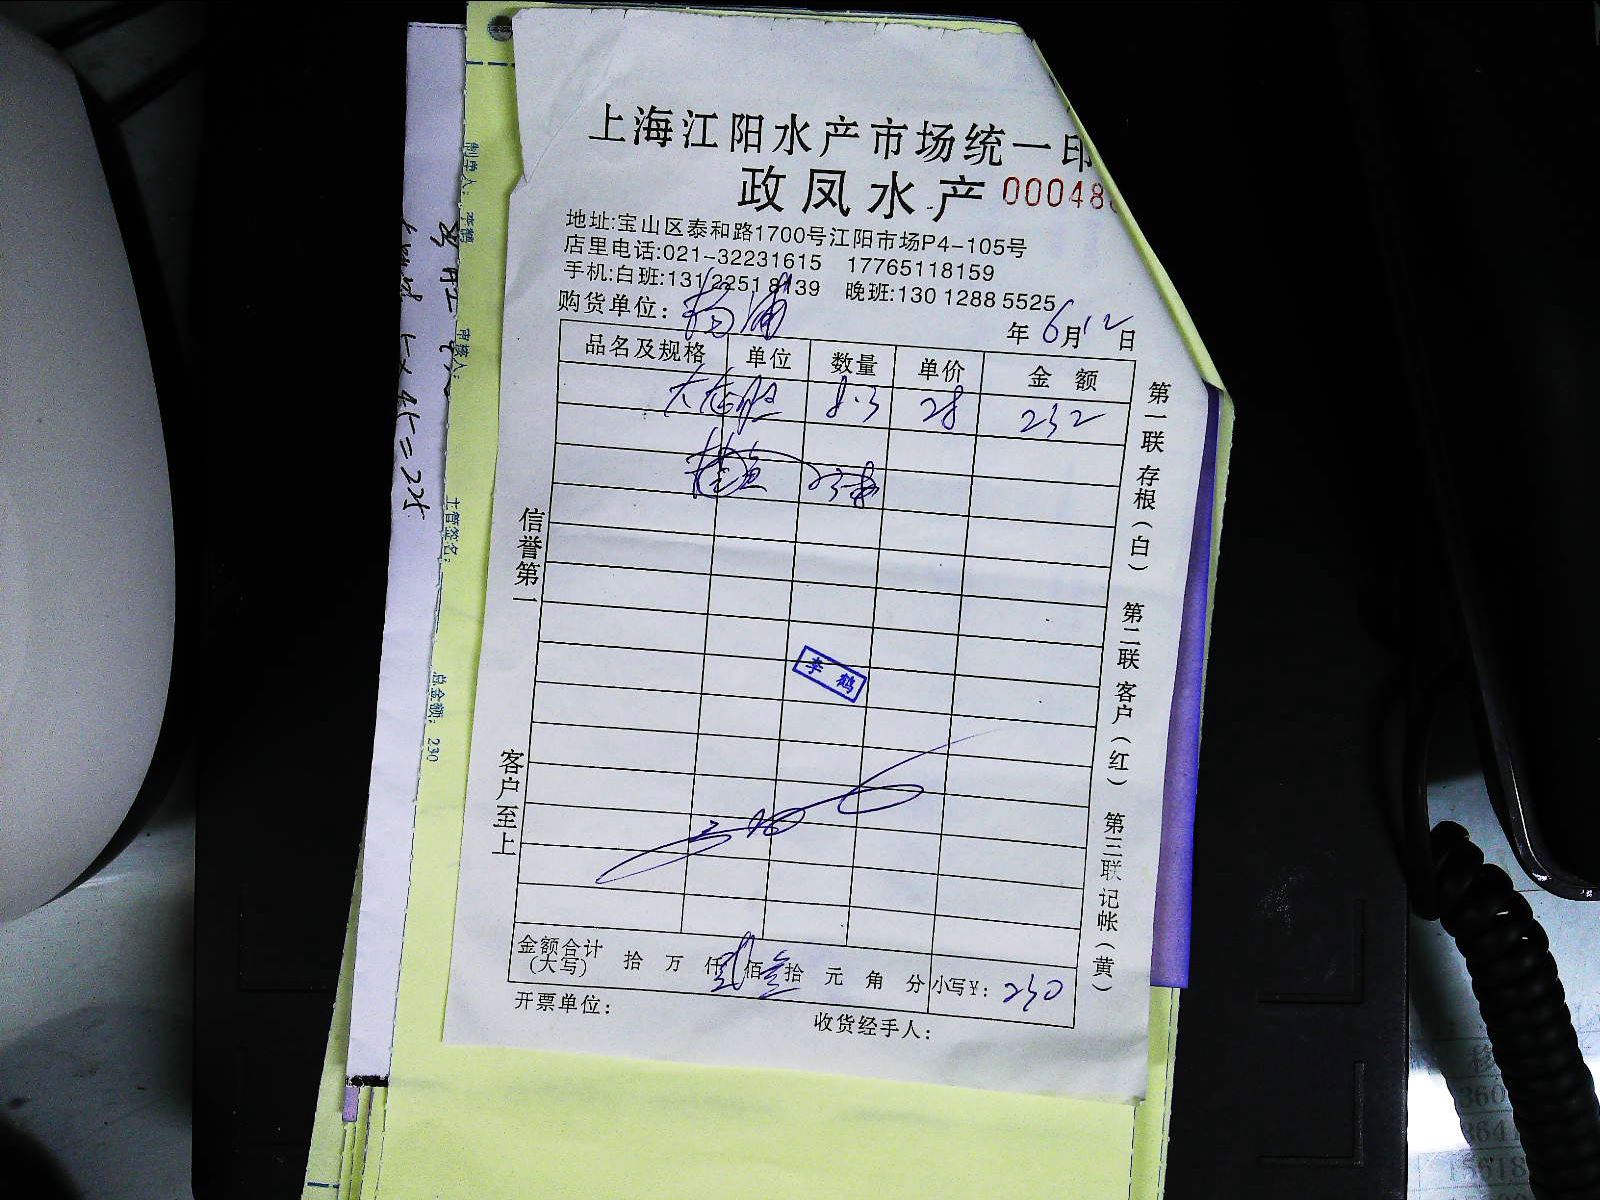 上海江阳水产市场统一印
政凤水产 000488
地址:宝山区泰和路1700号江阳市场P4-105号
店里电话:021-32231615 17765118159
手机:白班:131 2251 8139 晚班:130 1288 5525
购货单位: 杨浦
年 6月12日
品名及规格 单位 数量 单价 金额
8.3 28 232
李鹤
金额合计(大写) 拾 万 仟 贰佰 叁拾 元 角 分 小写¥: 230
开票单位: 收货经手人:
信誉第一
客户至上
第一联 存根(白) 第二联 客户(红) 第三联 记帐(黄)
制单人: 李鹤
审核人:
主管签名:
总金额: 230
5×45=225